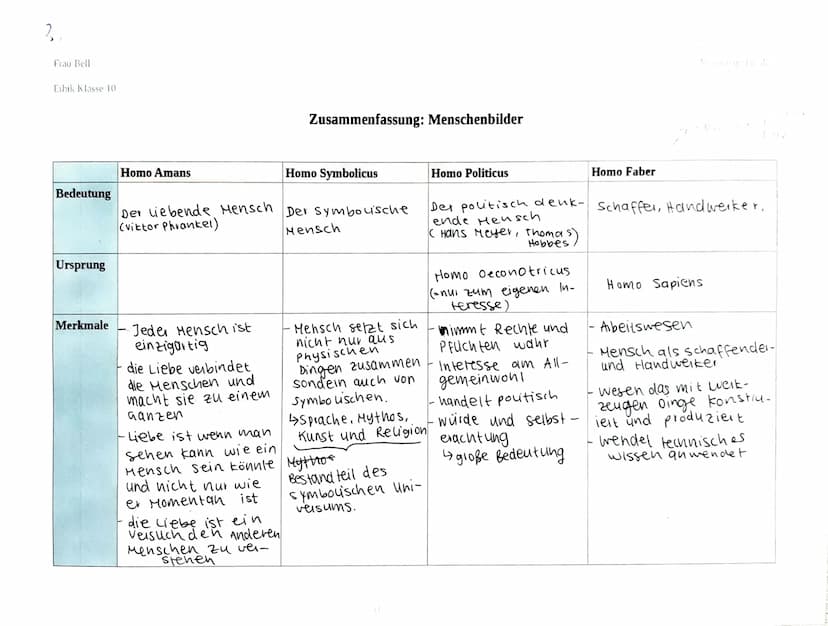 2.
Frau Bell
Ethik Klasse 10
Zusammenfassung: Menschenbilder
Homo Amans
Homo Symbolicus
Homo Politicus
Homo Faber
Bedeutung
Der liebende Mensch
(Viktor Phrankel)
Der symbolische
Mensch
Der politisch denk-
ende Mensch
(Hans Meyer, Thomas
Hobbes)
Schaffer, Handwerker.
Ursprung
Homo Oeconotricus
(=nur zum eigenen In-
teresse)
Homo Sapiens
Merkmale
- Jeder Mensch ist
einzigartig
- die Liebe verbindet
die Menschen und
macht sie zu einem
Ganzen
- Liebe ist wenn man
sehen kann wie ein
Mensch sein könnte
und nicht nur wie
er momentan ist
- die Liebe ist ein
Versuch den anderen
Menschen zu ver-
stehen
- Mensch setzt sich
nicht nur aus
physischen
Dingen zusammen
sondern auch von
symbolischen.
↳Sprache, Mythos,
Kunst und Religion
Mythos
Bestandteil des
symbolischen Uni-
versums.
- nimmt Rechte und
Pflichten wahr
- Interesse am All-
gemeinwohl
- handelt politisch
- würde und selbst-
erachtung
↳große Bedeutung
- Arbeitswesen
- Mensch als schaffender
und Handwerker
- Wesen das mit Werk-
zeugen Dinge konstru-
iert und produziert
- technisches
Wissen anwendet